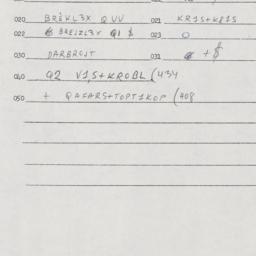 020 BREKL3X QUV 021 KR1S+K81S
022 BREIZL3X Q1 $ 023 O
030 DARBROJT 031 + $
040 Q2 V1,S+KROBL (434
050 + QAFARS+TOPT1KOP (408